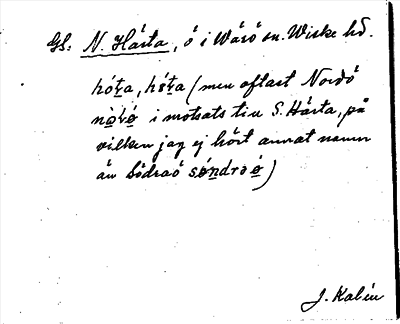 Gs: N. Hårta, ö i Wärö sn. Wiske hd.
hó̱ta, hó̱ta (men oftast Nordö
nó̱rö̱ i motsats till S. Hårta, på
vilken jag ej hört annat namn
än Södraö só̱ndroö̱)
J. Kalén